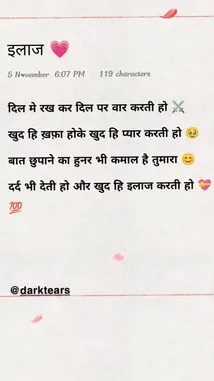 इलाज 💗
5 N♥vember 6:07 PM 119 characters
दिल मे रख कर दिल पर वार करती हो ⚔️
खुद हि ख़फ़ा होके खुद हि प्यार करती हो 🥹
बात छुपाने का हुनर भी कमाल है तुमारा 😊
दर्द भी देती हो और खुद हि इलाज करती हो 💝
💯
@darktears